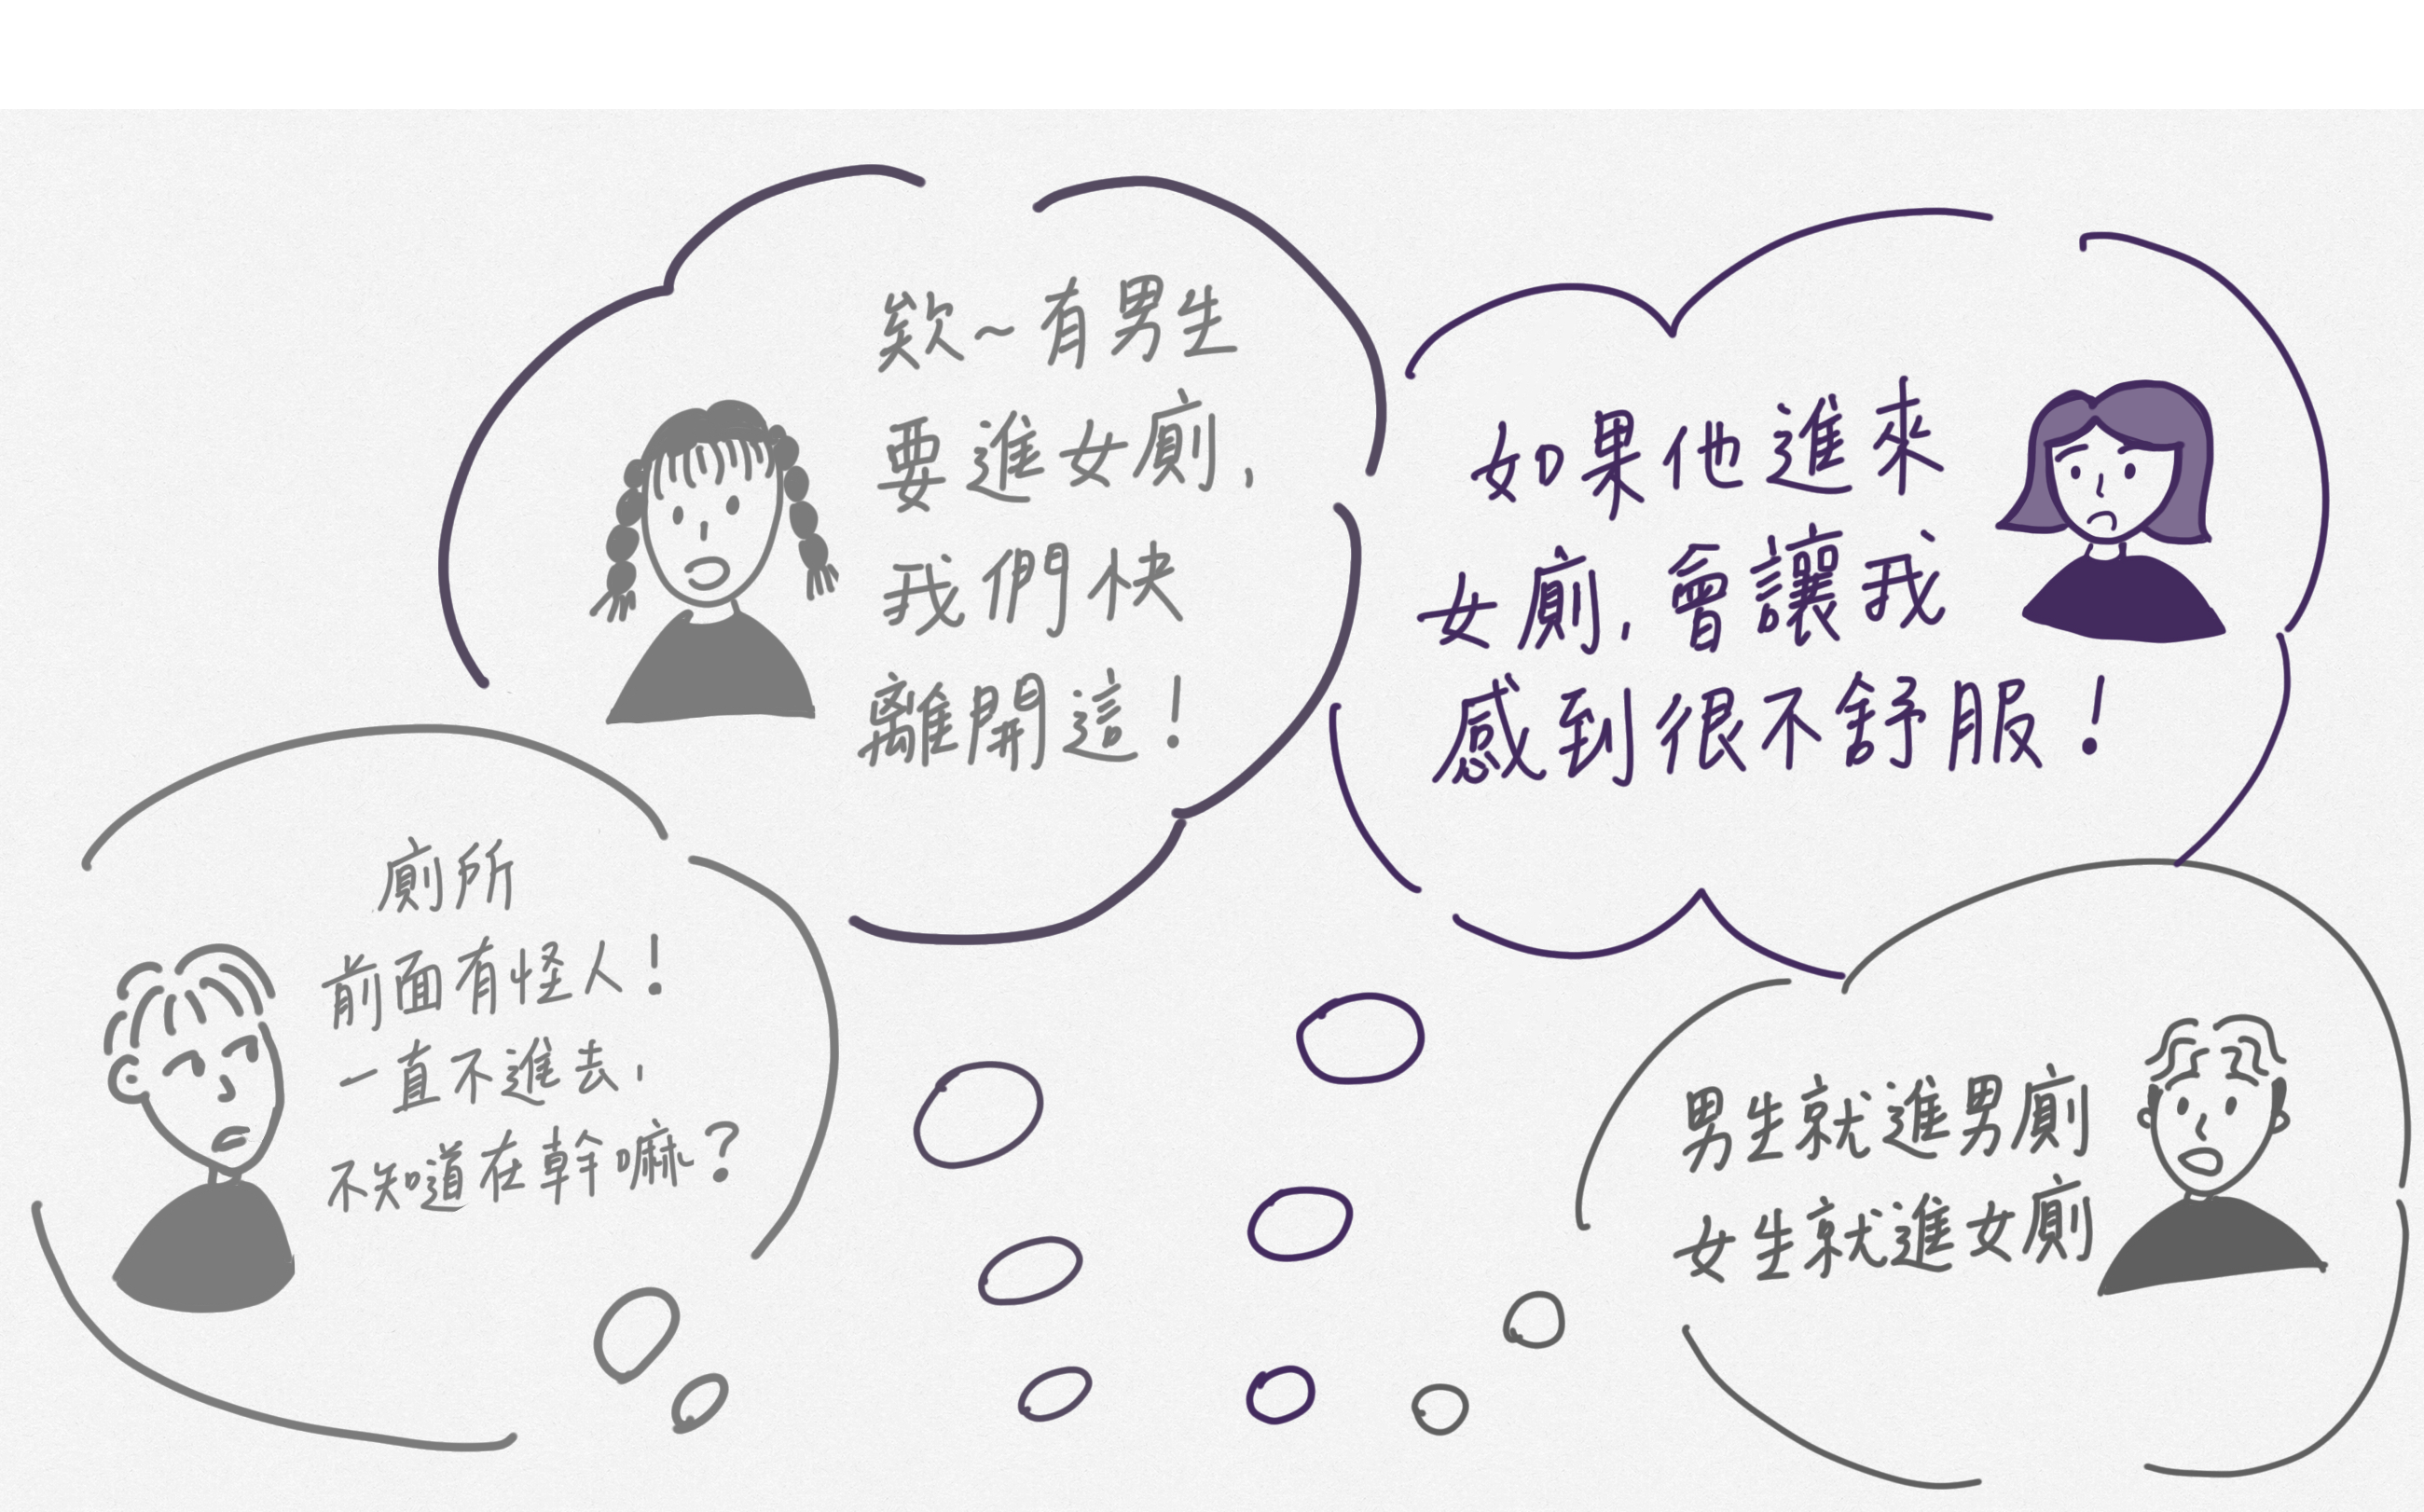 欸~有男生
要進女廁,
我們快
離開這!
如果他進來
女廁,會讓我
感到很不舒服!
廁所
前面有怪人!
一直不進去,
不知道在幹嘛?
男生就進男廁
女生就進女廁